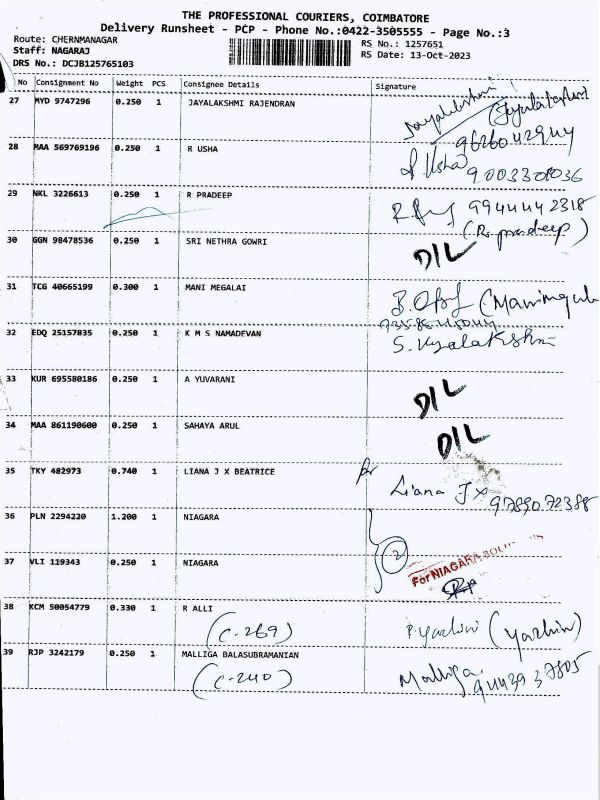 THE PROFESSIONAL COURIERS, COIMBATORE
Delivery Runsheet - PCP - Phone No.:0422-3505555 - Page No.:3
Route: CHERNMANAGAR
Staff: NAGARAJ
DRS No.: DCJB125765103
RS No.: 1257651
RS Date: 13-Oct-2023
No Consignment No Weight PCS Consignee Details Signature
27 MYD 9747296 0.250 1 JAYALAKSHMI RAJENDRAN Jayalakshmi
9626042944
28 MAA 569769196 0.250 1 R USHA Usha
29 NKL 3226613 0.250 1 R PRADEEP 9944442318
(R. pradeep)
30 GGN 98478536 0.250 1 SRI NETHRA GOWRI D/L
31 TCG 40665199 0.300 1 MANI MEGALAI
32 EDQ 25157835 0.250 1 K M S NAMADEVAN S. Vyalakshmi
33 KUR 695580186 0.250 1 A YUVARANI D/L
34 MAA 861190600 0.250 1 SAHAYA ARUL D/L
35 TKY 482973 0.740 1 LIANA J X BEATRICE Liana J X
9789072388
36 PLN 2294220 1.200 1 NIAGARA
2
37 VLI 119343 0.250 1 NIAGARA For NIAGARA
38 KCM 50054779 0.330 1 R ALLI P. Yazhini (Yazhini)
(C-269)
39 RJP 3242179 0.250 1 MALLIGA BALASUBRAMANIAN Malliga
(C-240) 9443937805